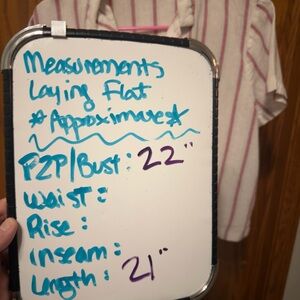 Measurements
Laying Flat
*Approximate*
P2P/Bust: 22"
Waist:
Rise:
Inseam:
Length: 21"